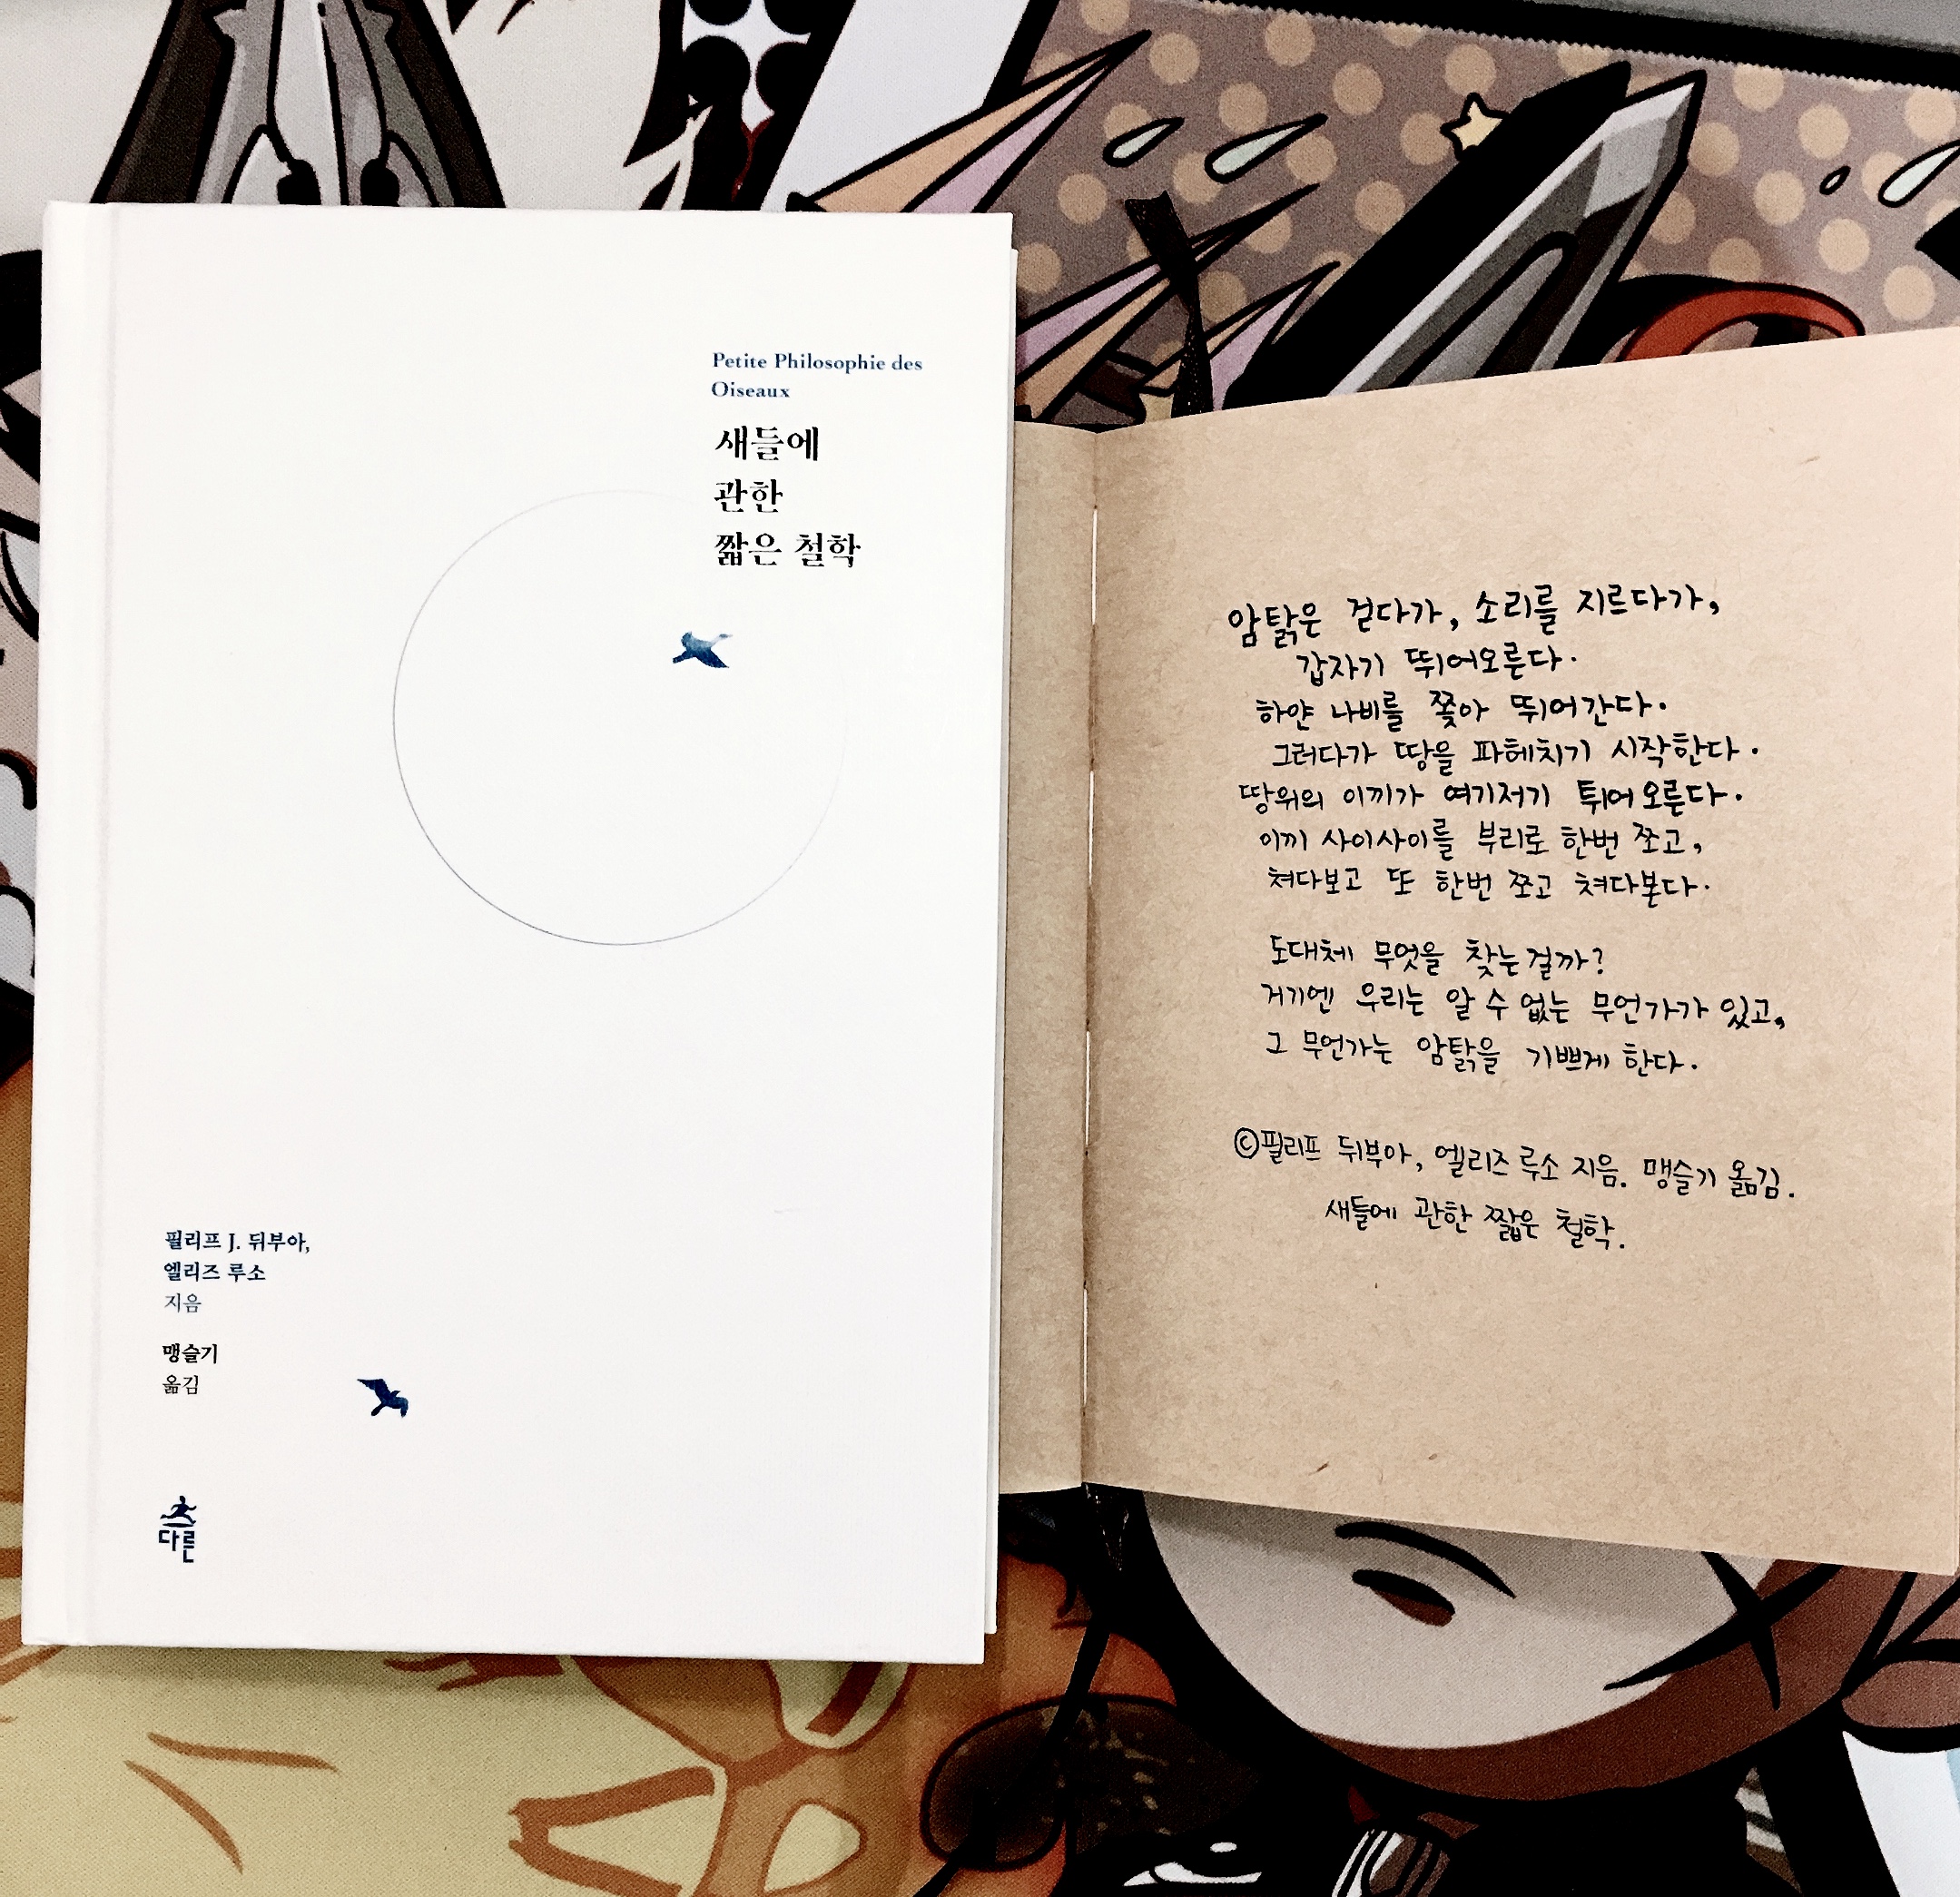 Petite Philosophie des
Oiseaux
새들에
관한
짧은 철학
필리프 J. 뒤부아,
엘리즈 루소
지음
맹슬기
옮김
다른
암탉은 걷다가, 소리를 지르다가,
갑자기 뛰어오른다.
하얀 나비를 쫓아 뛰어간다.
그러다가 땅을 파헤치기 시작한다.
땅위의 이끼가 여기저기 튀어오른다.
이끼 사이사이를 부리로 한번 쪼고,
쳐다보고 또 한번 쪼고 쳐다본다.
도대체 무엇을 찾는걸까?
거기엔 우리는 알 수 없는 무언가가 있고,
그 무언가는 암탉을 기쁘게 한다.
©필리프 뒤부아, 엘리즈 루소 지음. 맹슬기 옮김.
새들에 관한 짧은 철학.